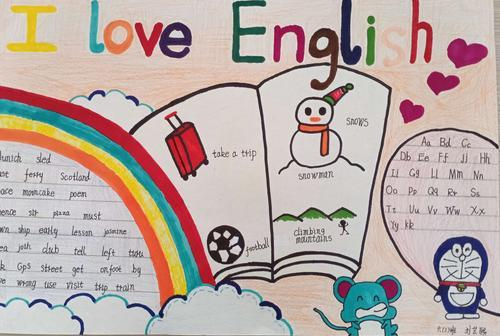 I love English
sled
ferry Scotland
mooncake poem
sir pizza must
early lesson jasmine
josh club tell left
GPS street get on foot by
wrong use visit trip train
take a trip
football
snows
snowman
climbing
mountains
Aa Bd Cc
Db Ee Ff Jj Hh
Ii Gg Ll Mm Nn
Oo Pp Qq Rr Ss
Tt Uu Vv Ww Xx
Yy kk